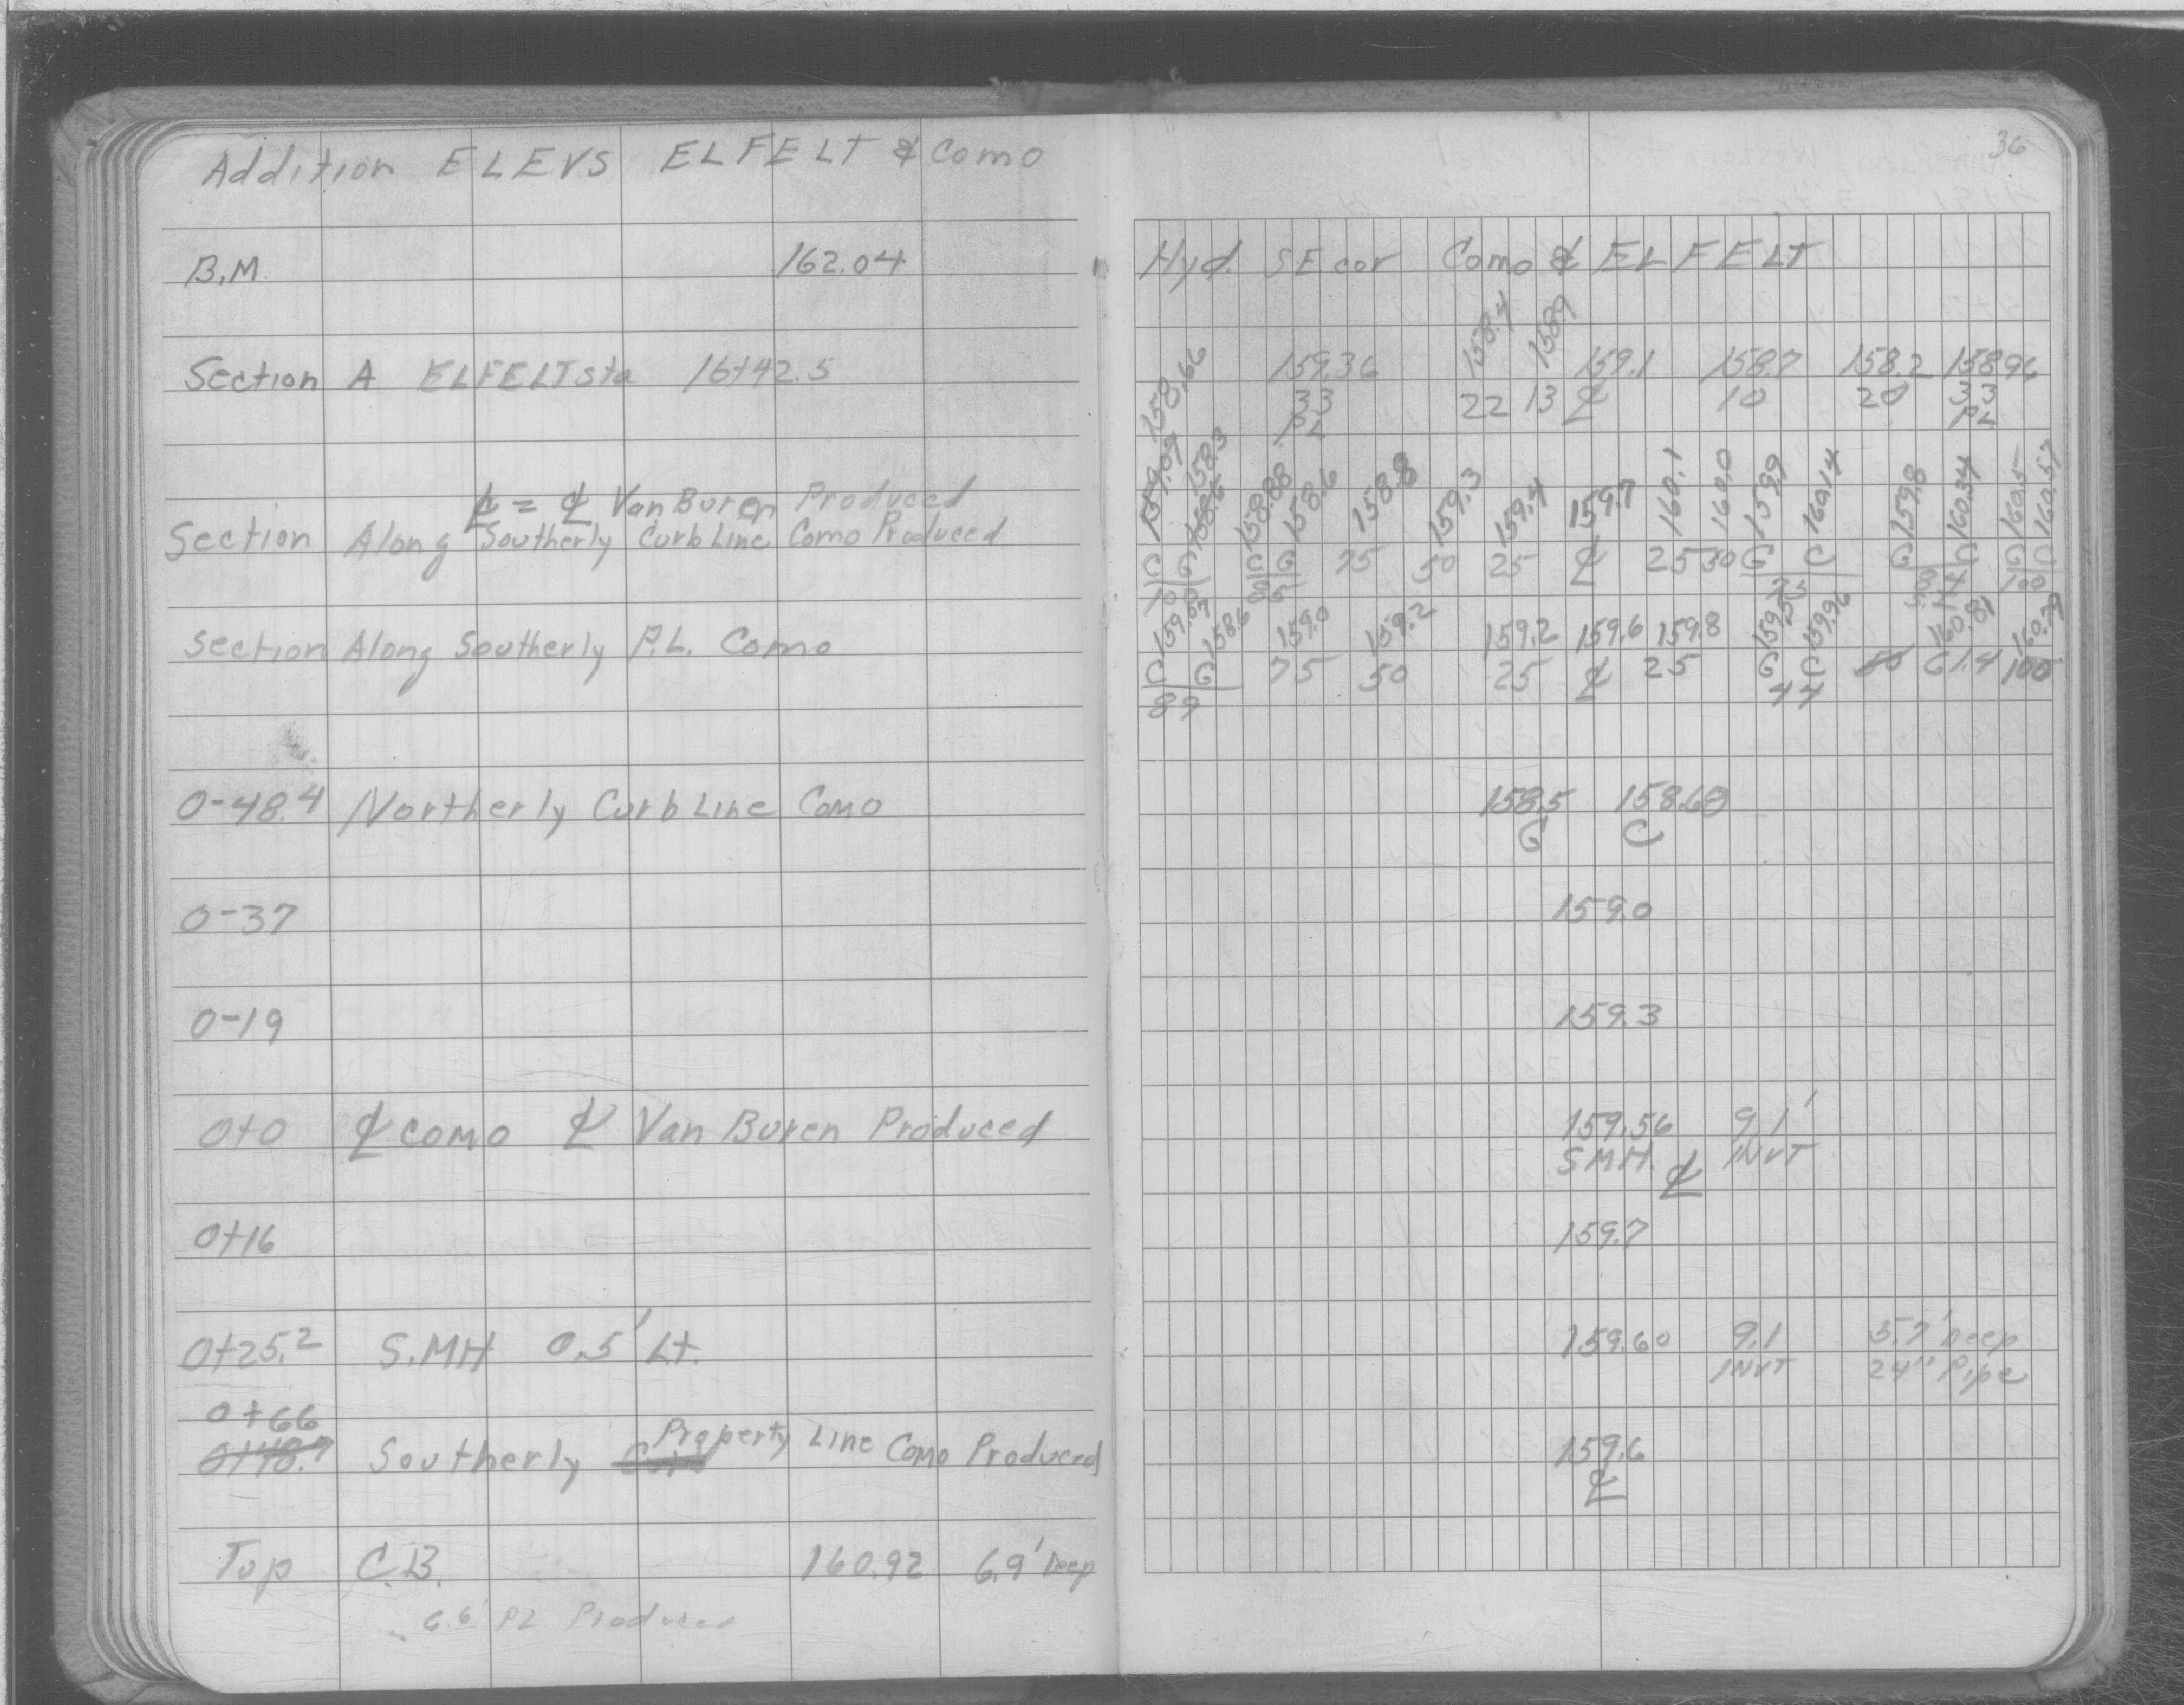 Addition ELEVS ELFELT & Como
B.M 162.04
Section A ELFELT sta 16+42.5
℄ = ℄ Van Buren Produced
Section Along Southerly Curb Line Como Produced
Section Along Southerly P.L. Como
0-48.4 Northerly Curb Line Como
0-37
0-19
0+0 ℄ Como ℄ Van Buren Produced
0+16
0+25.2 S.MH 0.5' Lt.
0+66
0+48.7 Southerly Curb Property Line Como Produced
Top C.B. 160.92 6.9' Deep
6.6' PL Produced
36
Hyd. SE cor Como & ELFELT
158.66 159.36 158.4 158.9 159.1 158.7 158.2 158.96
33 22 13 ℄ 10 20 33
PL PL
159.09 158.3
158.6 158.88 158.6 158.8 159.3 159.4 159.7 160.1 160.0 159.9 160.14 159.8 160.34 160.5 160.57
C G C G 75 50 25 ℄ 25 30 G C G C G C
100 85 100
159.07 158.6 159.0 159.2 159.2 159.6 159.8 159.55 159.96 160.81 160.79
C G 75 50 25 ℄ 25 G C 61.4 100
89 44
158.5 158.68
G C
159.0
159.3
159.56 9.1'
SMH. ℄ INVT
159.7
159.60 9.1 5.7' Deep
INVT 24" Pipe
159.6
℄